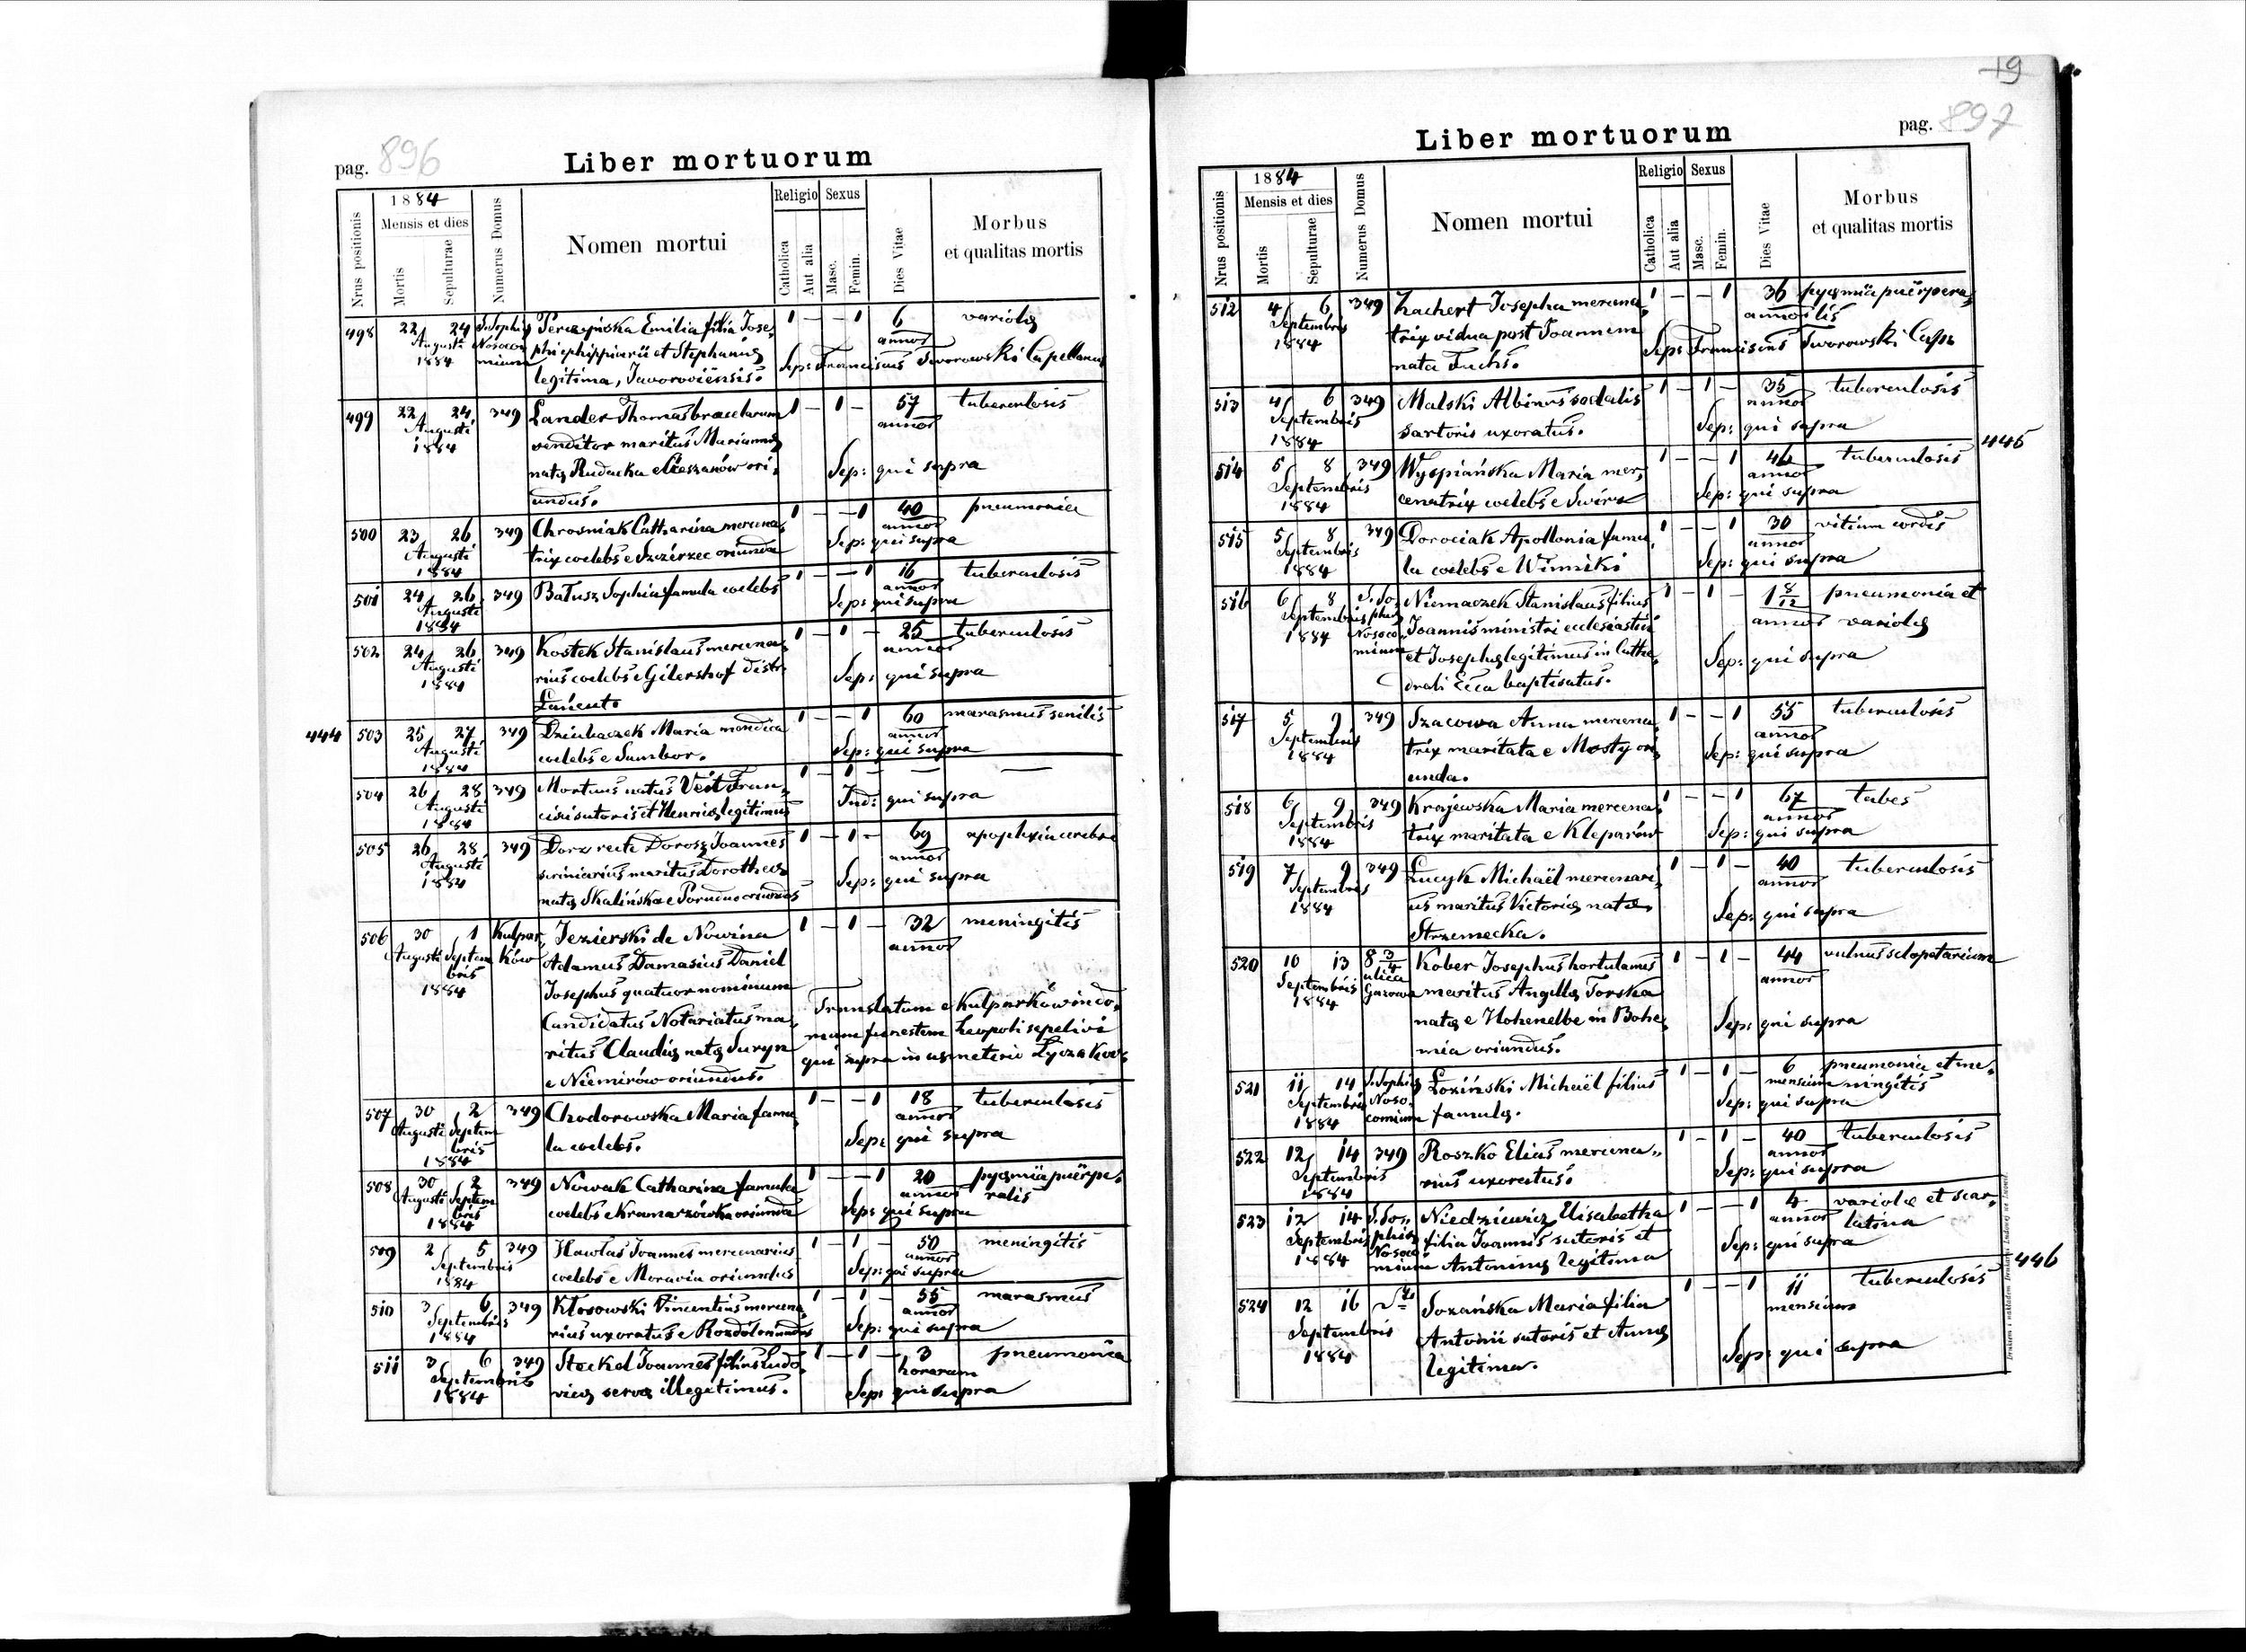 19
pag. 896
Liber mortuorum
Nrus positionis
1884
Mensis et dies
Mortis
Sepulturae
Numerus Domus
Nomen mortui
Religio
Catholica
Aut alia
Sexus
Masc.
Femin.
Dies Vitae
Morbus
et qualitas mortis
498 22 24 S. Sophię Perczyńska Emilia filia Jose, 1 — — 1 6 variolę
Augusti Nosoco annor
1884 mium phi ephippiarii et Stephanię Sep: Franciscus Tworowski Capellanus
legitima, Javoroviensis.
499 22 24 349 Lander Thomas bracchiarum 1 — 1 — 57 tuberculosis
Augusti venditor maritus Mariannę annor
1884 natę Rudacka e Cieszanów ori, Sep: qui supra
undus.
500 23 26 349 Chrosniak Catharina mercena, 1 — — 1 40 pneumonia
Augusti trix coelebs e Szczerzec oriunda annor
1884 Sep: qui supra
501 24 26 349 Batusz Sophia famula coelebs 1 — — 1 16 tuberculosis
Augusti annor
1884 Sep: qui supra
502 24 26 349 Kostek Stanislaus mercena, 1 — 1 — 25 tuberculosis
Augusti rius coelebs e Gilershof distr. annor
1884 Łańcut. Sep: qui supra
444 503 25 27 349 Dziubaczek Maria mendica 1 — — 1 60 marasmus senilis
Augusti coelebs e Sambor. annor
1884 Sep: qui supra
504 26 28 349 Mortuus natus Veit Fran, 1 — 1 — — —
Augusti cisci sutoris et Henricę legitimus Ind: qui supra
1884
505 26 28 349 Dorz recte Dorosz Joannes 1 — 1 — 69 apoplexia cerebri
Augusti scriniarius maritus Dorotheę annor
1884 natę Skalińska e Porudno oriundus Sep: qui supra
506 30 1 Kulpar, Jezierski de Nowina 1 — 1 — 32 meningitis
Augusti Septem ków Adamus Damasius Daniel annor
bris Josephus quatuor nominum
1884 Candidatus Notariatus ma, Translatum e Kulparków in do,
ritus Claudię natę Suryn mum funestam Leopoli sepelivi
e Niemirów oriundus. qui supra in cœmeterio Lyczakov:
507 30 2 349 Chodorowska Maria famu, 1 — — 1 18 tuberculosis
Augusti Septem la coelebs. annor
bris Sep: qui supra
1884
508 30 2 349 Nowak Catharina famula 1 — — 1 20 pyęmia puërpe,
Augusti Septem coelebs e Kramarzówka oriunda annor ralis
bris Sep: qui supra
1884
509 2 5 349 Hawlas Joannes mercenarius 1 — 1 — 50 meningitis
Septembris coelebs e Moravia oriundus annor
1884 Sep: qui supra
510 3 6 349 Kłosowski Vincentius mercena, 1 — 1 — 55 marasmus
Septembris rius uxoratus e Rozdół oriundus annor
1884 Sep: qui supra
511 3 6 349 Steckel Joannes filius Ludo, 1 — 1 — 3 pneumonia
Septembris vicę servę illegitimus. horarum
1884 Sep: qui supra
pag. 897
Liber mortuorum
Nrus positionis
1884
Mensis et dies
Mortis
Sepulturae
Numerus Domus
Nomen mortui
Religio
Catholica
Aut alia
Sexus
Masc.
Femin.
Dies Vitae
Morbus
et qualitas mortis
512 4 6 349 Zachert Josepha mercena, 1 — — 1 36 pyęmia puërpera,
Septembris trix vidua post Joannem annor lis
1884 nata Fuchs. Sep: Franciscus Tworowski Cap:
513 4 6 349 Malski Albinus sodalis 1 — 1 — 35 tuberculosis
Septembris sartoris uxoratus. annor
1884 Sep: qui supra
445
514 5 8 349 Wyspiańska Maria mer, 1 — — 1 46 tuberculosis
Septembris cenatrix coelebs e Swirz annor
1884 Sep: qui supra
515 5 8 349 Dorociak Apollonia famu, 1 — — 1 30 vitium cordis
Septembris la coelebs e Winniki annor
1884 Sep: qui supra
516 6 8 S. So, Niemaczek Stanislaus filius 1 — 1 — 1 8/12 pneumonia et
Septembris phię Joannis ministri ecclesiastici annor variolę
1884 Nosoco et Josephę legitimus in Cathe,
mium drali Ecca baptisatus. Sep: qui supra
517 5 9 349 Szacowa Anna mercena, 1 — — 1 55 tuberculosis
Septembris trix maritata e Mosty ori, annor
1884 unda. Sep: qui supra
518 6 9 349 Krajewska Maria mercena, 1 — — 1 67 tabes
Septembris trix maritata e Kleparów annor
1884 Sep: qui supra
519 7 9 349 Łucyk Michaël mercenari, 1 — 1 — 40 tuberculosis
Septembris us maritus Victorię natę annor
1884 Strzemecka. Sep: qui supra
520 10 13 8 3/4 Kober Josephus hortulanus 1 — 1 — 44 vulnus sclopetarium
Septembris ulica maritus Angelę Torska annor
1884 Gazowa natę e Hohenelbe in Bohe, Sep: qui supra
mia oriundus.
521 11 14 S. Sophię Łoziński Michaël filius 1 — 1 — 6 pneumonia et me,
Septembris Noso, famulę. mensium ningitis
1884 comium Sep: qui supra
522 12 14 349 Roszko Elias mercena, 1 — 1 — 40 tuberculosis
Septembris rius uxoratus. annor
1884 Sep: qui supra
523 12 14 S. So, Niedziewicz Elisabetha 1 — — 1 4 variolæ et scar,
Septembris phię filia Joannis sutoris et annor latina
1884 Nosoco Antoninę legitima Sep: qui supra
mium
446
524 12 16 Sozańska Maria filia 1 — — 1 11 tuberculosis
Septembris Antonii sutoris et Annę mensium
1884 legitima. Sep: qui supra